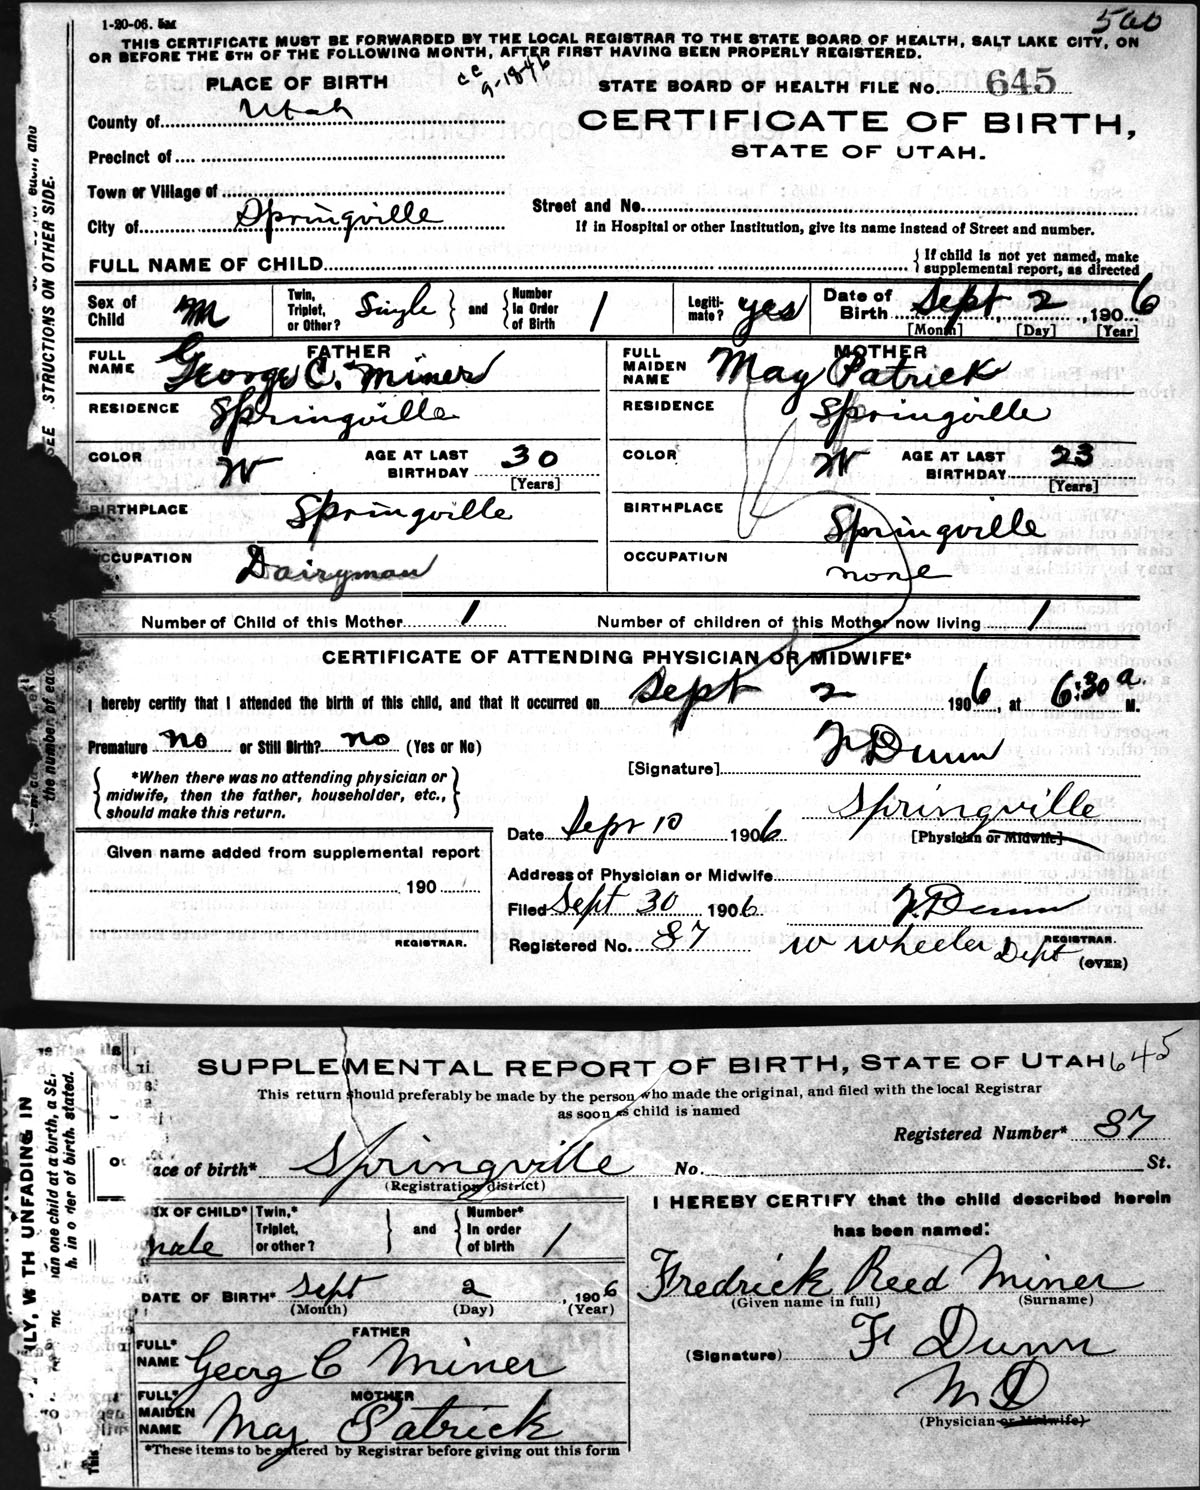 1-20-06. 5M
560
THIS CERTIFICATE MUST BE FORWARDED BY THE LOCAL REGISTRAR TO THE STATE BOARD OF HEALTH, SALT LAKE CITY, ON
OR BEFORE THE 5TH OF THE FOLLOWING MONTH, AFTER FIRST HAVING BEEN PROPERLY REGISTERED.
PLACE OF BIRTH
cc 9-1846
STATE BOARD OF HEALTH FILE NO. 645
County of Utah
CERTIFICATE OF BIRTH,
STATE OF UTAH.
Precinct of
Town or Village of
Street and No.
City of Springville
If in Hospital or other Institution, give its name instead of Street and number.
FULL NAME OF CHILD
If child is not yet named, make
supplemental report, as directed
Sex of Child M Twin, Triplet, or Other? Single and Number In Order of Birth 1 Legiti-mate? yes Date of Birth Sept 2, 1906
[Month] [Day] [Year]
FATHER MOTHER
FULL NAME George C. Miner FULL MAIDEN NAME May Patrick
RESIDENCE Springville RESIDENCE Springville
COLOR W AGE AT LAST BIRTHDAY 30 [Years] COLOR W AGE AT LAST BIRTHDAY 23 [Years]
BIRTHPLACE Springville BIRTHPLACE Springville
OCCUPATION Dairyman OCCUPATION none
Number of Child of this Mother 1 Number of children of this Mother now living 1
CERTIFICATE OF ATTENDING PHYSICIAN OR MIDWIFE*
I hereby certify that I attended the birth of this child, and that it occurred on Sept 2 1906, at 6:30 a. M.
Premature no or Still Birth? no (Yes or No)
[Signature] F Dunn
*When there was no attending physician or
midwife, then the father, householder, etc.,
should make this return.
Springville
Date Sept 10 1906 [Physician or Midwife]
Given name added from supplemental report
Address of Physician or Midwife
190
Filed Sept 30 1906. F. Dunn
REGISTRAR.
Registered No. 87 W Wheeler Dept REGISTRAR.
(OVER)
SEE STRUCTIONS ON OTHER SIDE.
the number of eac
SUPPLEMENTAL REPORT OF BIRTH, STATE OF UTAH 645
This return should preferably be made by the person who made the original, and filed with the local Registrar
as soon as child is named
Registered Number* 87
ace of birth* Springville No. St.
(Registration district)
I HEREBY CERTIFY that the child described herein
has been named:
EX OF CHILD* male Twin,* Triplet, or other? and Number* In order of birth 1
Fredrick Reed Miner
(Given name in full) (Surname)
DATE OF BIRTH* Sept 2, 1906
(Month) (Day) (Year)
FATHER
FULL* NAME Georg C Miner
(Signature) F Dunn
M D
(Physician or Midwife)
MOTHER
FULL* MAIDEN NAME May Patrick
*These items to be entered by Registrar before giving out this form
ILY, W TH UNFADING IN
an one child at a birth, a SE.
h. in o rder of birth. stated.
This